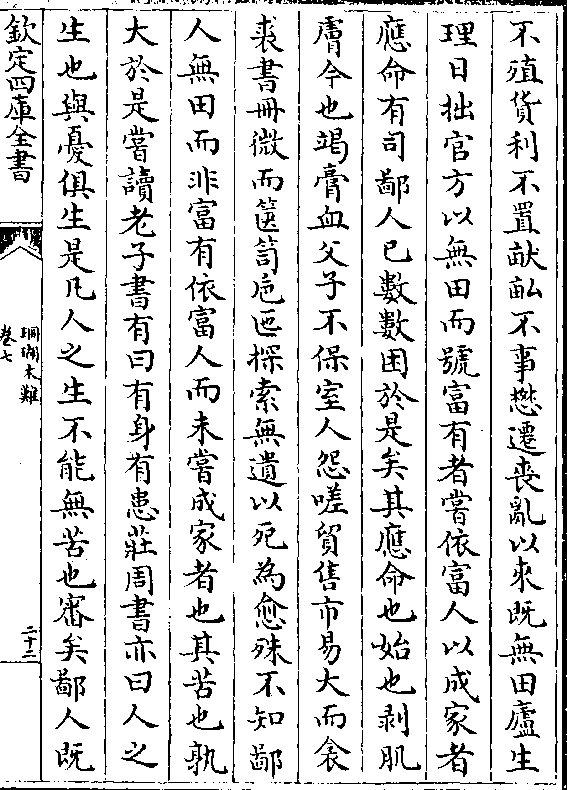 不殖貨利不置献畝不事懋遷喪亂以來既無田廬生
理日拙官方以無田而號富有者嘗依富人以成家者
應命有司鄙人已數數困於是矣其應命也始也剥肌
膚今也竭膏血父子不保室人怨嗟貿售市易大而衾
裘書冊微而篋笥巵匜探索無遺以死為愈殊不知鄙
人無田而非富有依富人而未嘗成家者也其苦也孰
大於是嘗讀老子書有曰有身有患莊周書亦曰人之
生也與憂俱生是凡人之生不能無苦也審矣鄙人既
欽定四庫全書
珊瑚木難
卷七
二十二